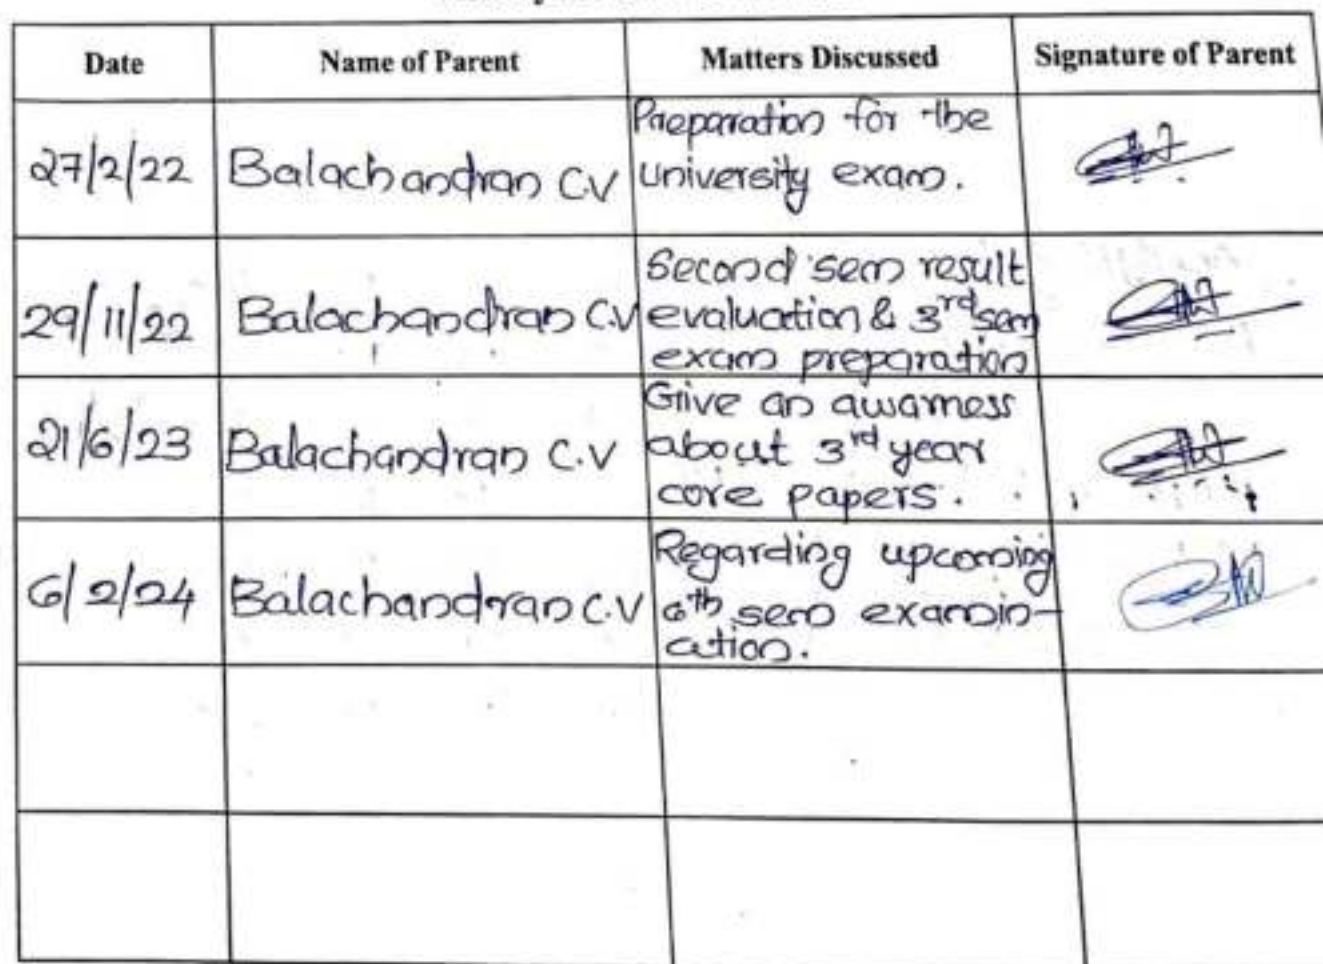 Date Name of Parent Matters Discussed Signature of Parent
27/2/22 Balachandran C.V Preparation for the
university exam.
29/11/22 Balachandran C.V Second sem result
evaluation & 3rd sem
exam preparation
21/6/23 Balachandran C.V Give an awarness
about 3rd year
core papers.
6/2/24 Balachandran C.V Regarding upcoming
6th sem examin-
ation.